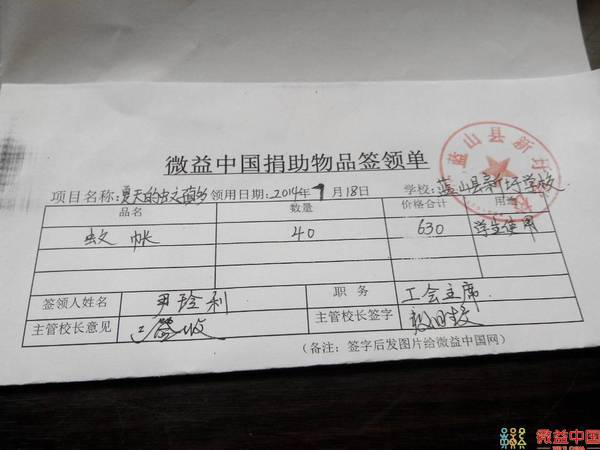 微益中国捐助物品签领单
项目名称:夏天的蚊 领用日期:2014年7月18日 学校:蓝山县新圩学校
品名 数量 价格合计 用
蚊帐 40 630 学生使用
签领人姓名 尹玲利 职务 工会主席
主管校长意见 已签收 主管校长签字
(备注:签字后发图片给微益中国网)
蓝山县新圩
微益中国